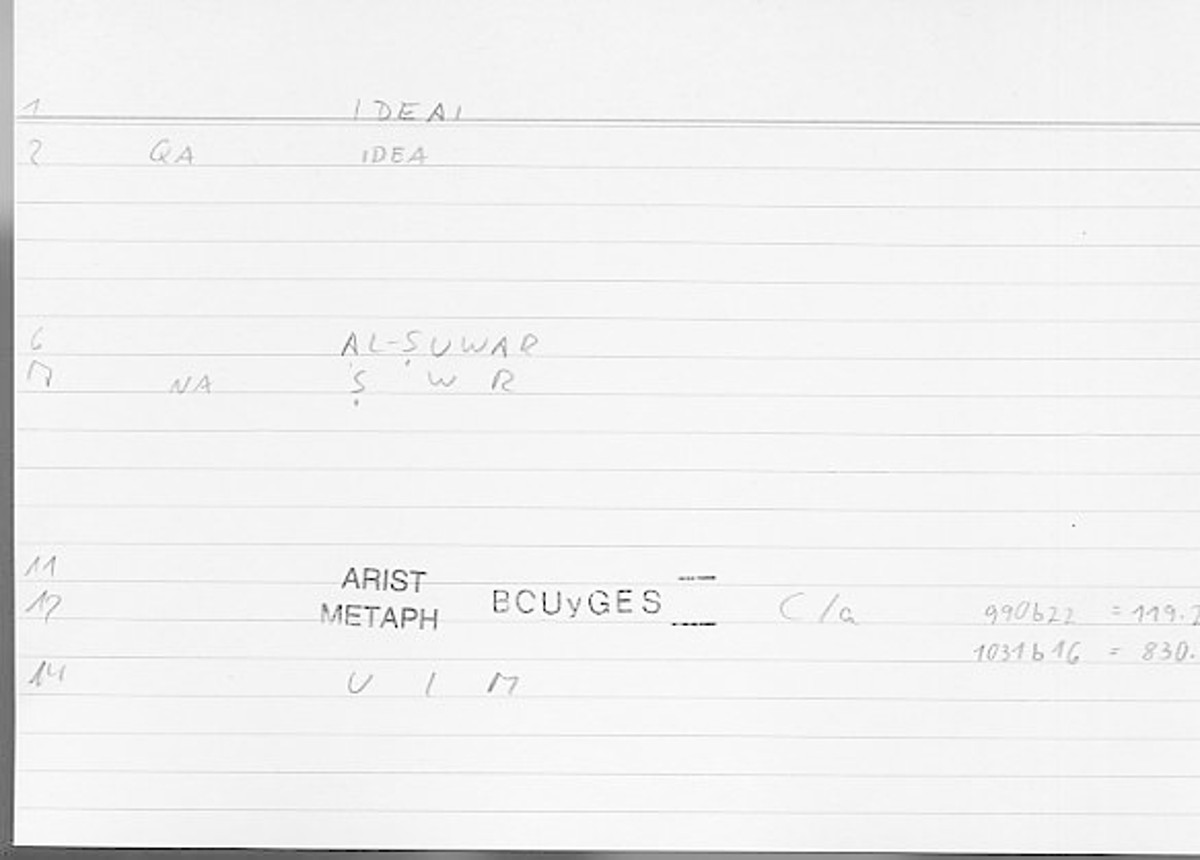 1 IDEAI
2 QA IDEA
6 AL-ṢUWAR
NA Ṣ W R
11 ARIST
12 METAPH BCUyGES C/a 990b22 = 119.
1031b16 = 830.
14 U I M